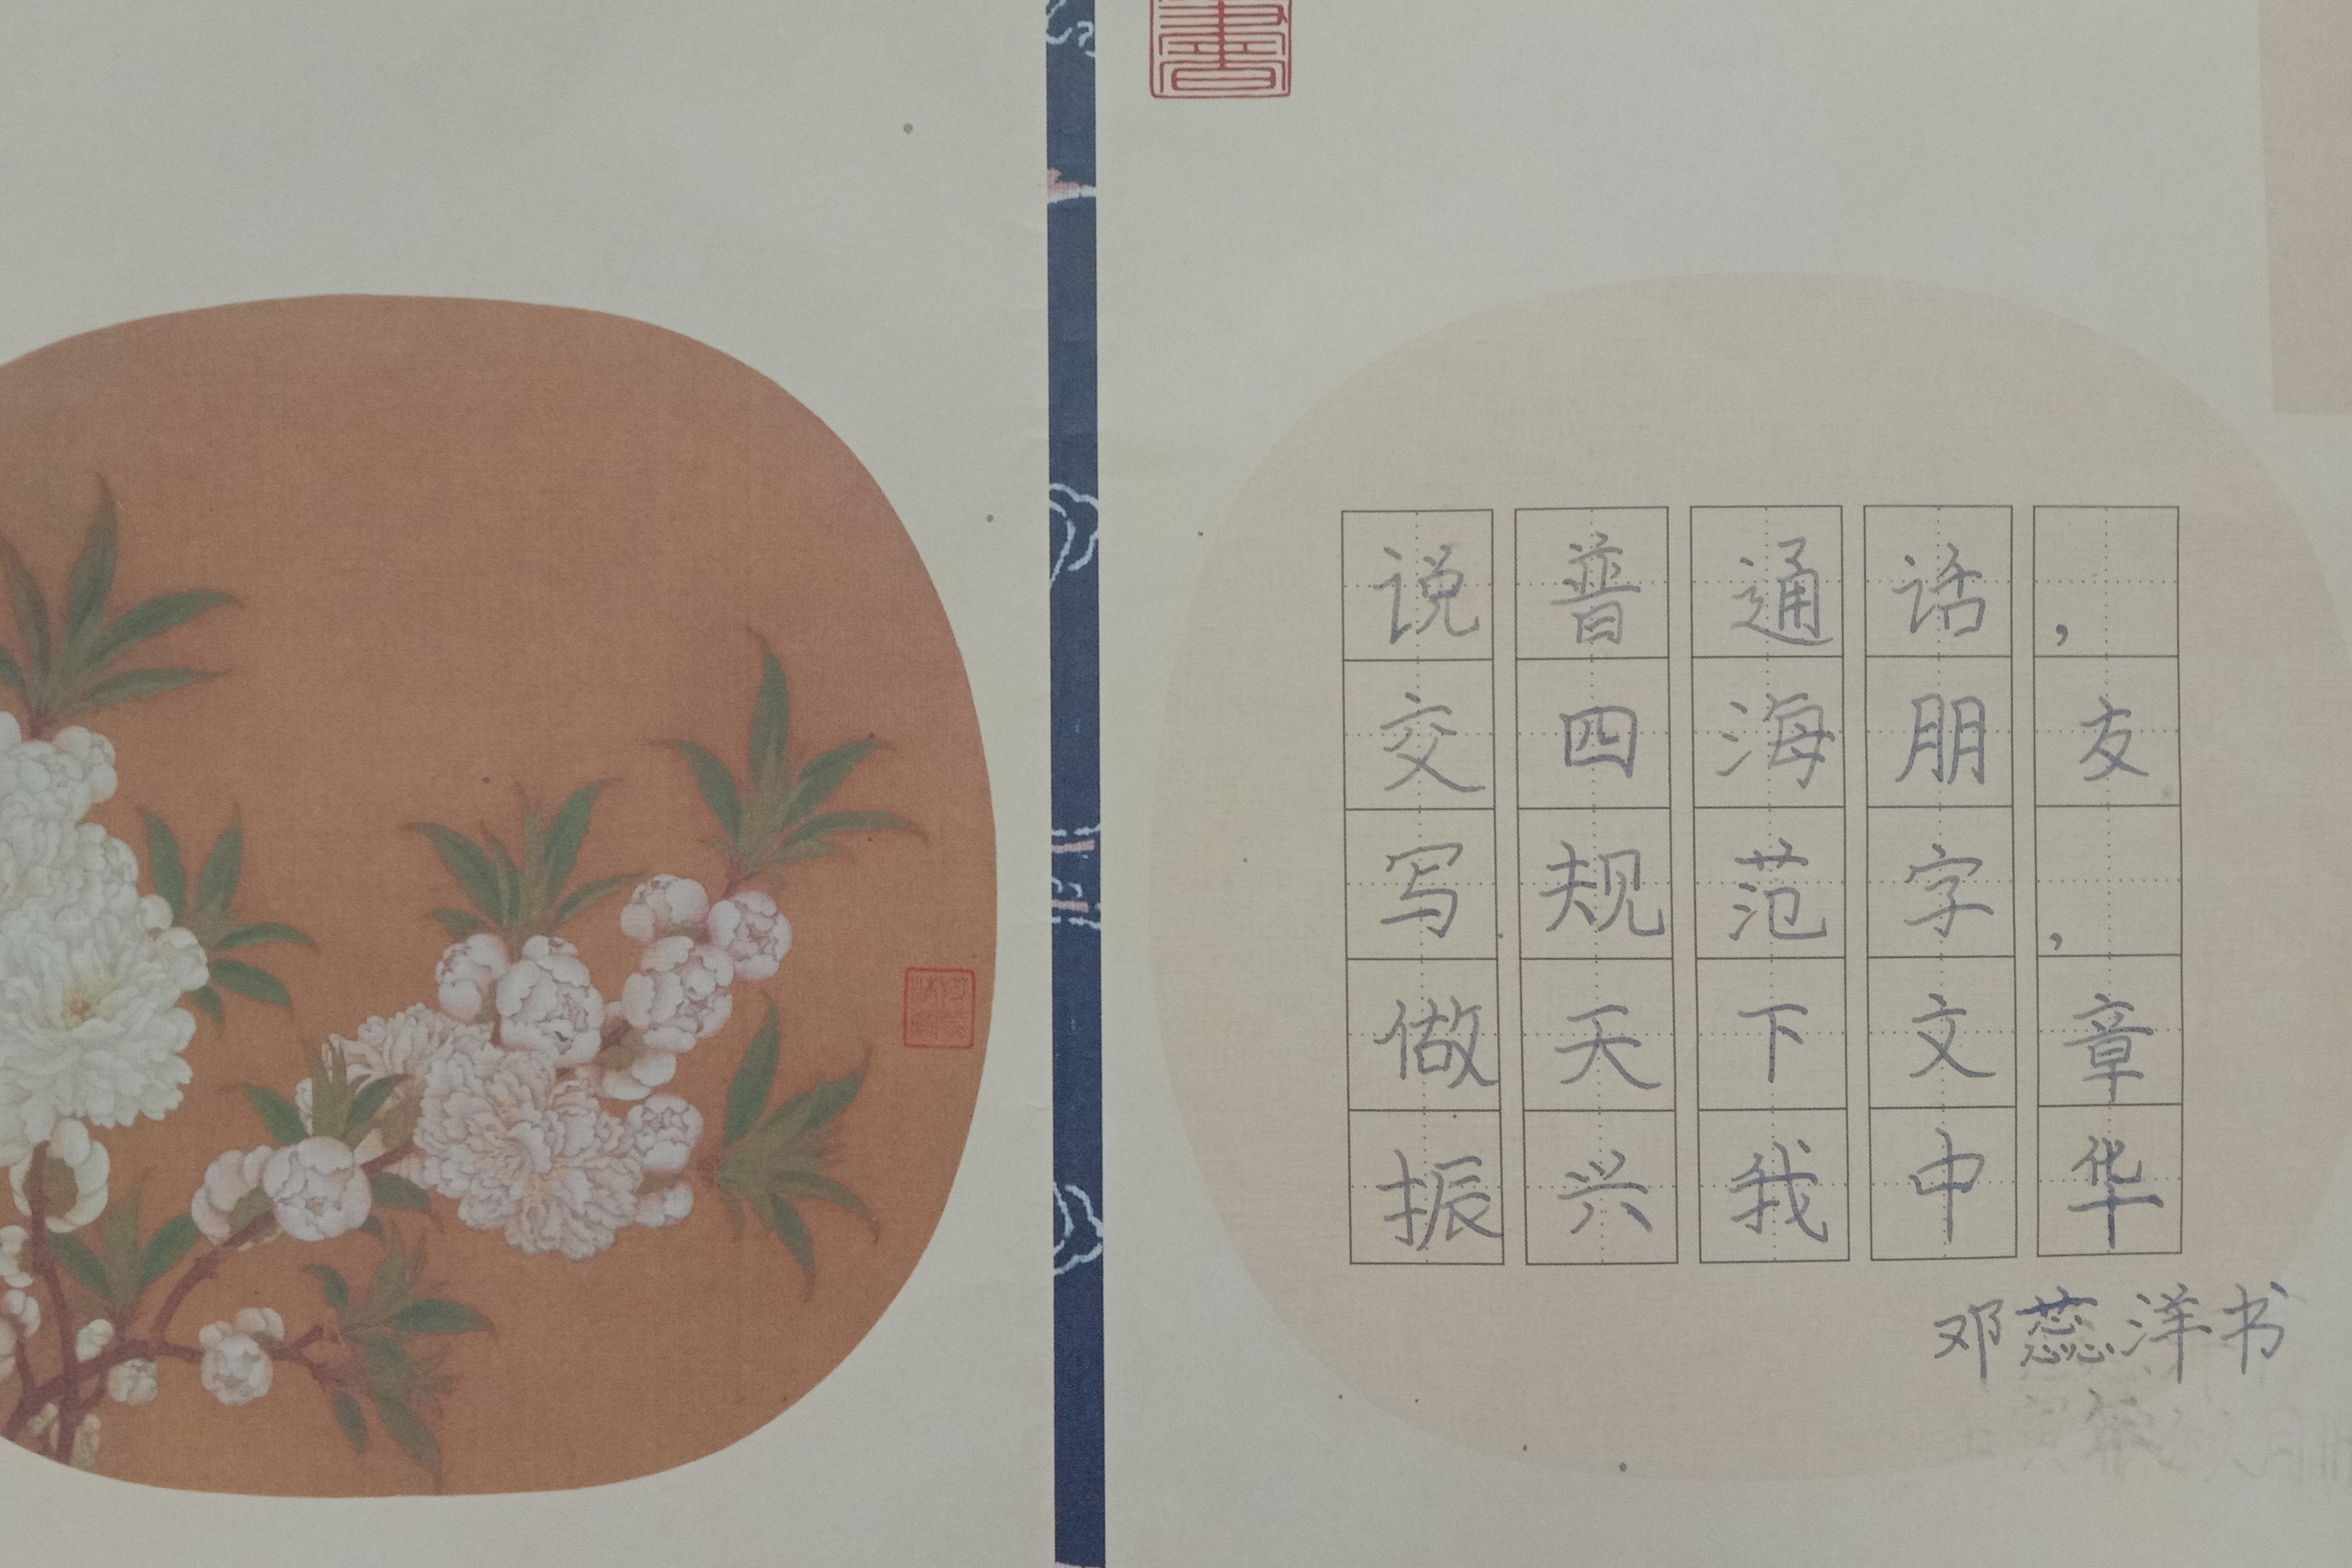 書
说普通话，
交四海朋友
写规范字，
做天下文章
振兴我中华
邓蕊洋书